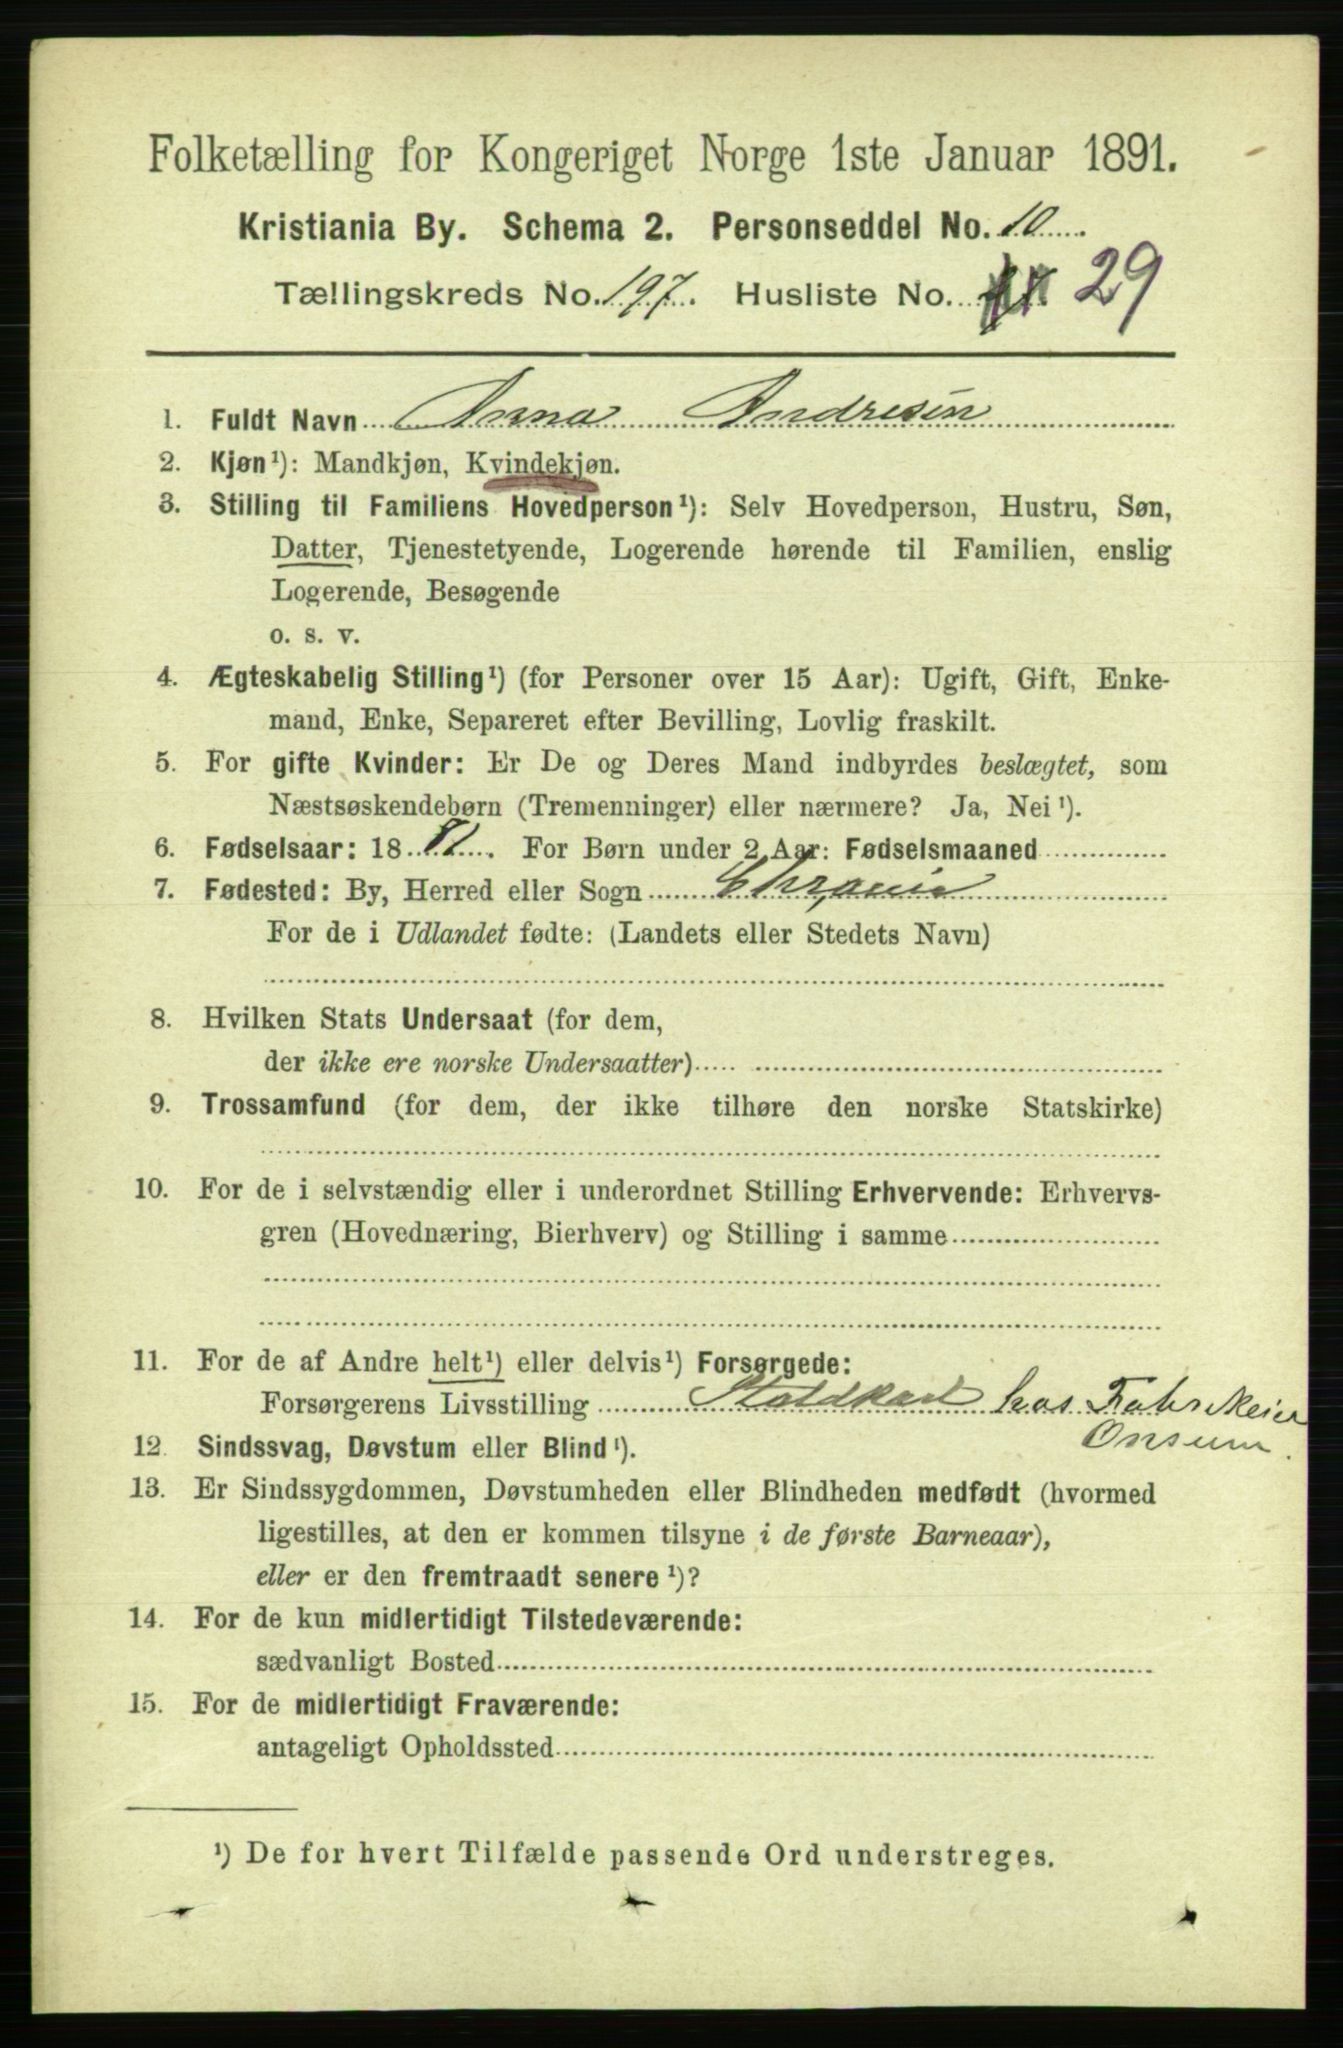 Folketælling for Kongeriget Norge 1ste Januar 1891.
Kristiania By. Schema 2. Personseddel No. 10
Tællingskreds No. 197. Husliste No. 29
1. Fuldt Navn Anna Andresen
2. Kjøn¹): Mandkjøn, Kvindekjøn.
3. Stilling til Familiens Hovedperson¹): Selv Hovedperson, Hustru, Søn,
Datter, Tjenestetyende, Logerende hørende til Familien, enslig
Logerende, Besøgende
o. s. v.
4. Ægteskabelig Stilling¹) (for Personer over 15 Aar): Ugift, Gift, Enke-
mand, Enke, Separeret efter Bevilling, Lovlig fraskilt.
5. For gifte Kvinder: Er De og Deres Mand indbyrdes beslægtet, som
Næstsøskendebørn (Tremenninger) eller nærmere? Ja, Nei¹).
6. Fødselsaar: 1881. For Børn under 2 Aar: Fødselsmaaned
7. Fødested: By, Herred eller Sogn Chrania
For de i Udlandet fødte: (Landets eller Stedets Navn)
8. Hvilken Stats Undersaat (for dem,
der ikke ere norske Undersaatter)
9. Trossamfund (for dem, der ikke tilhøre den norske Statskirke)
10. For de i selvstændig eller i underordnet Stilling Erhvervende: Erhvervs-
gren (Hovednæring, Bierhverv) og Stilling i samme
11. For de af Andre helt¹) eller delvis¹) Forsørgede:
Forsørgerens Livsstilling Staldkarl hos Fabr. Meier
Onsum.
12. Sindssvag, Døvstum eller Blind¹).
13. Er Sindssygdommen, Døvstumheden eller Blindheden medfødt (hvormed
ligestilles, at den er kommen tilsyne i de første Barneaar),
eller er den fremtraadt senere¹)?
14. For de kun midlertidigt Tilstedeværende:
sædvanligt Bosted
15. For de midlertidigt Fraværende:
antageligt Opholdssted
¹) De for hvert Tilfælde passende Ord understreges.